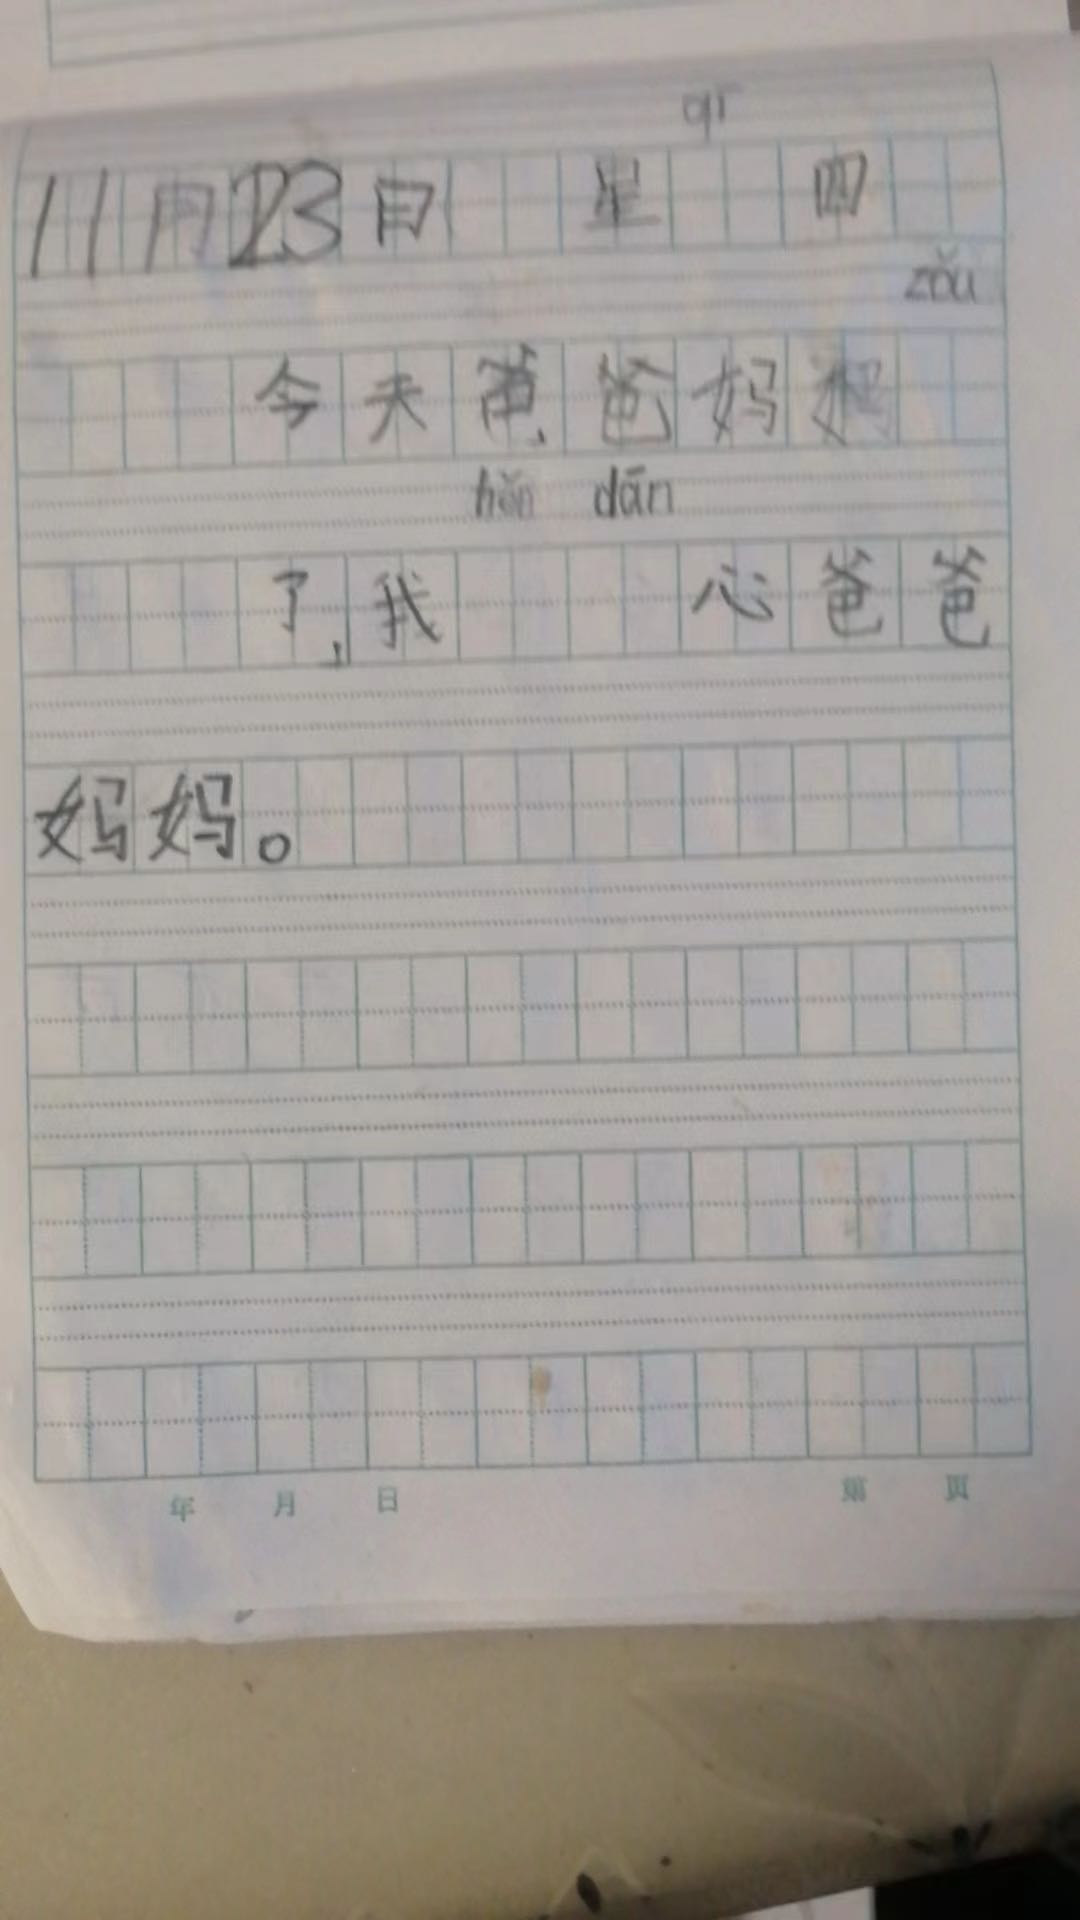 qī
11月23日 星 四
zǒu
今天爸爸妈妈
hěn dān
了,我 心爸爸
妈妈。
年 月 日 第 页